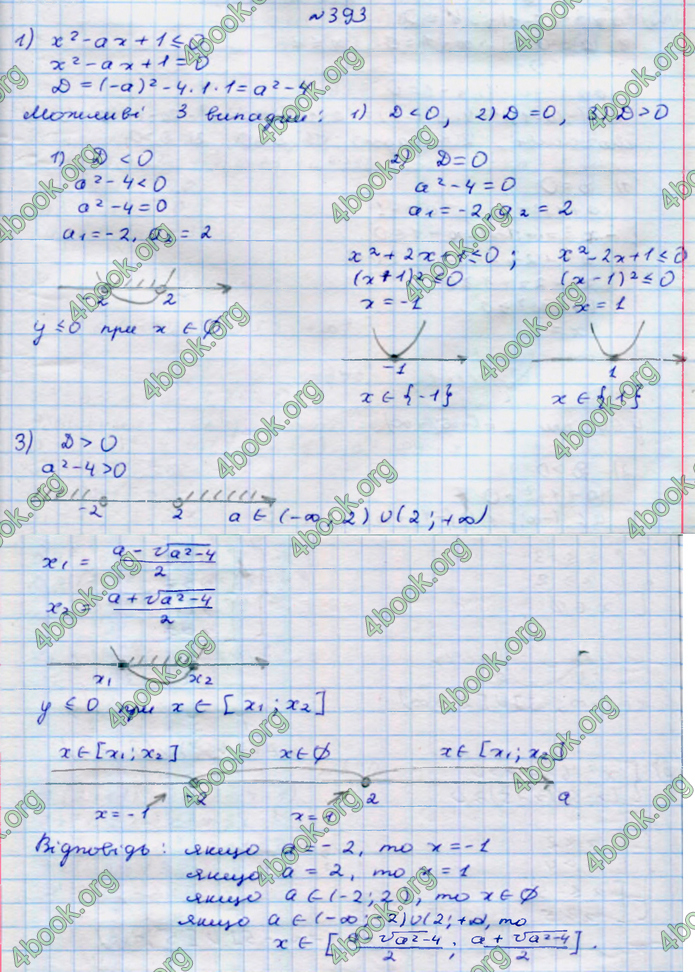 №393
1) x²-ax+1≤0
x²-ax+1=0
D=(-a)²-4·1·1=a²-4
Можливі 3 випадки: 1) D<0, 2) D=0, 3) D>0
1) D<0
a²-4<0
a²-4=0
a₁=-2, a₂=2
-2 2
y≤0 при x∈∅
2) D=0
a²-4=0
a₁=-2, a₂=2
x²+2x+1≤0; x²-2x+1≤0
(x+1)²≤0 (x-1)²≤0
x=-1 x=1
-1 1
x∈{-1} x∈{1}
3) D>0
a²-4>0
-2 2 a∈(-∞;-2)∪(2;+∞)
x₁=(a-√(a²-4))/2
x₂=(a+√(a²-4))/2
x₁ x₂
y≤0 при x∈[x₁;x₂]
x∈[x₁;x₂] x∈∅ x∈[x₁;x₂]
-2 2 a
x=-1 x=1
Відповідь: якщо a=-2, то x=-1
якщо a=2, то x=1
якщо a∈(-2;2), то x∈∅
якщо a∈(-∞;-2)∪(2;+∞, то
x∈[(a-√(a²-4))/2; (a+√(a²-4))/2].
4book.org